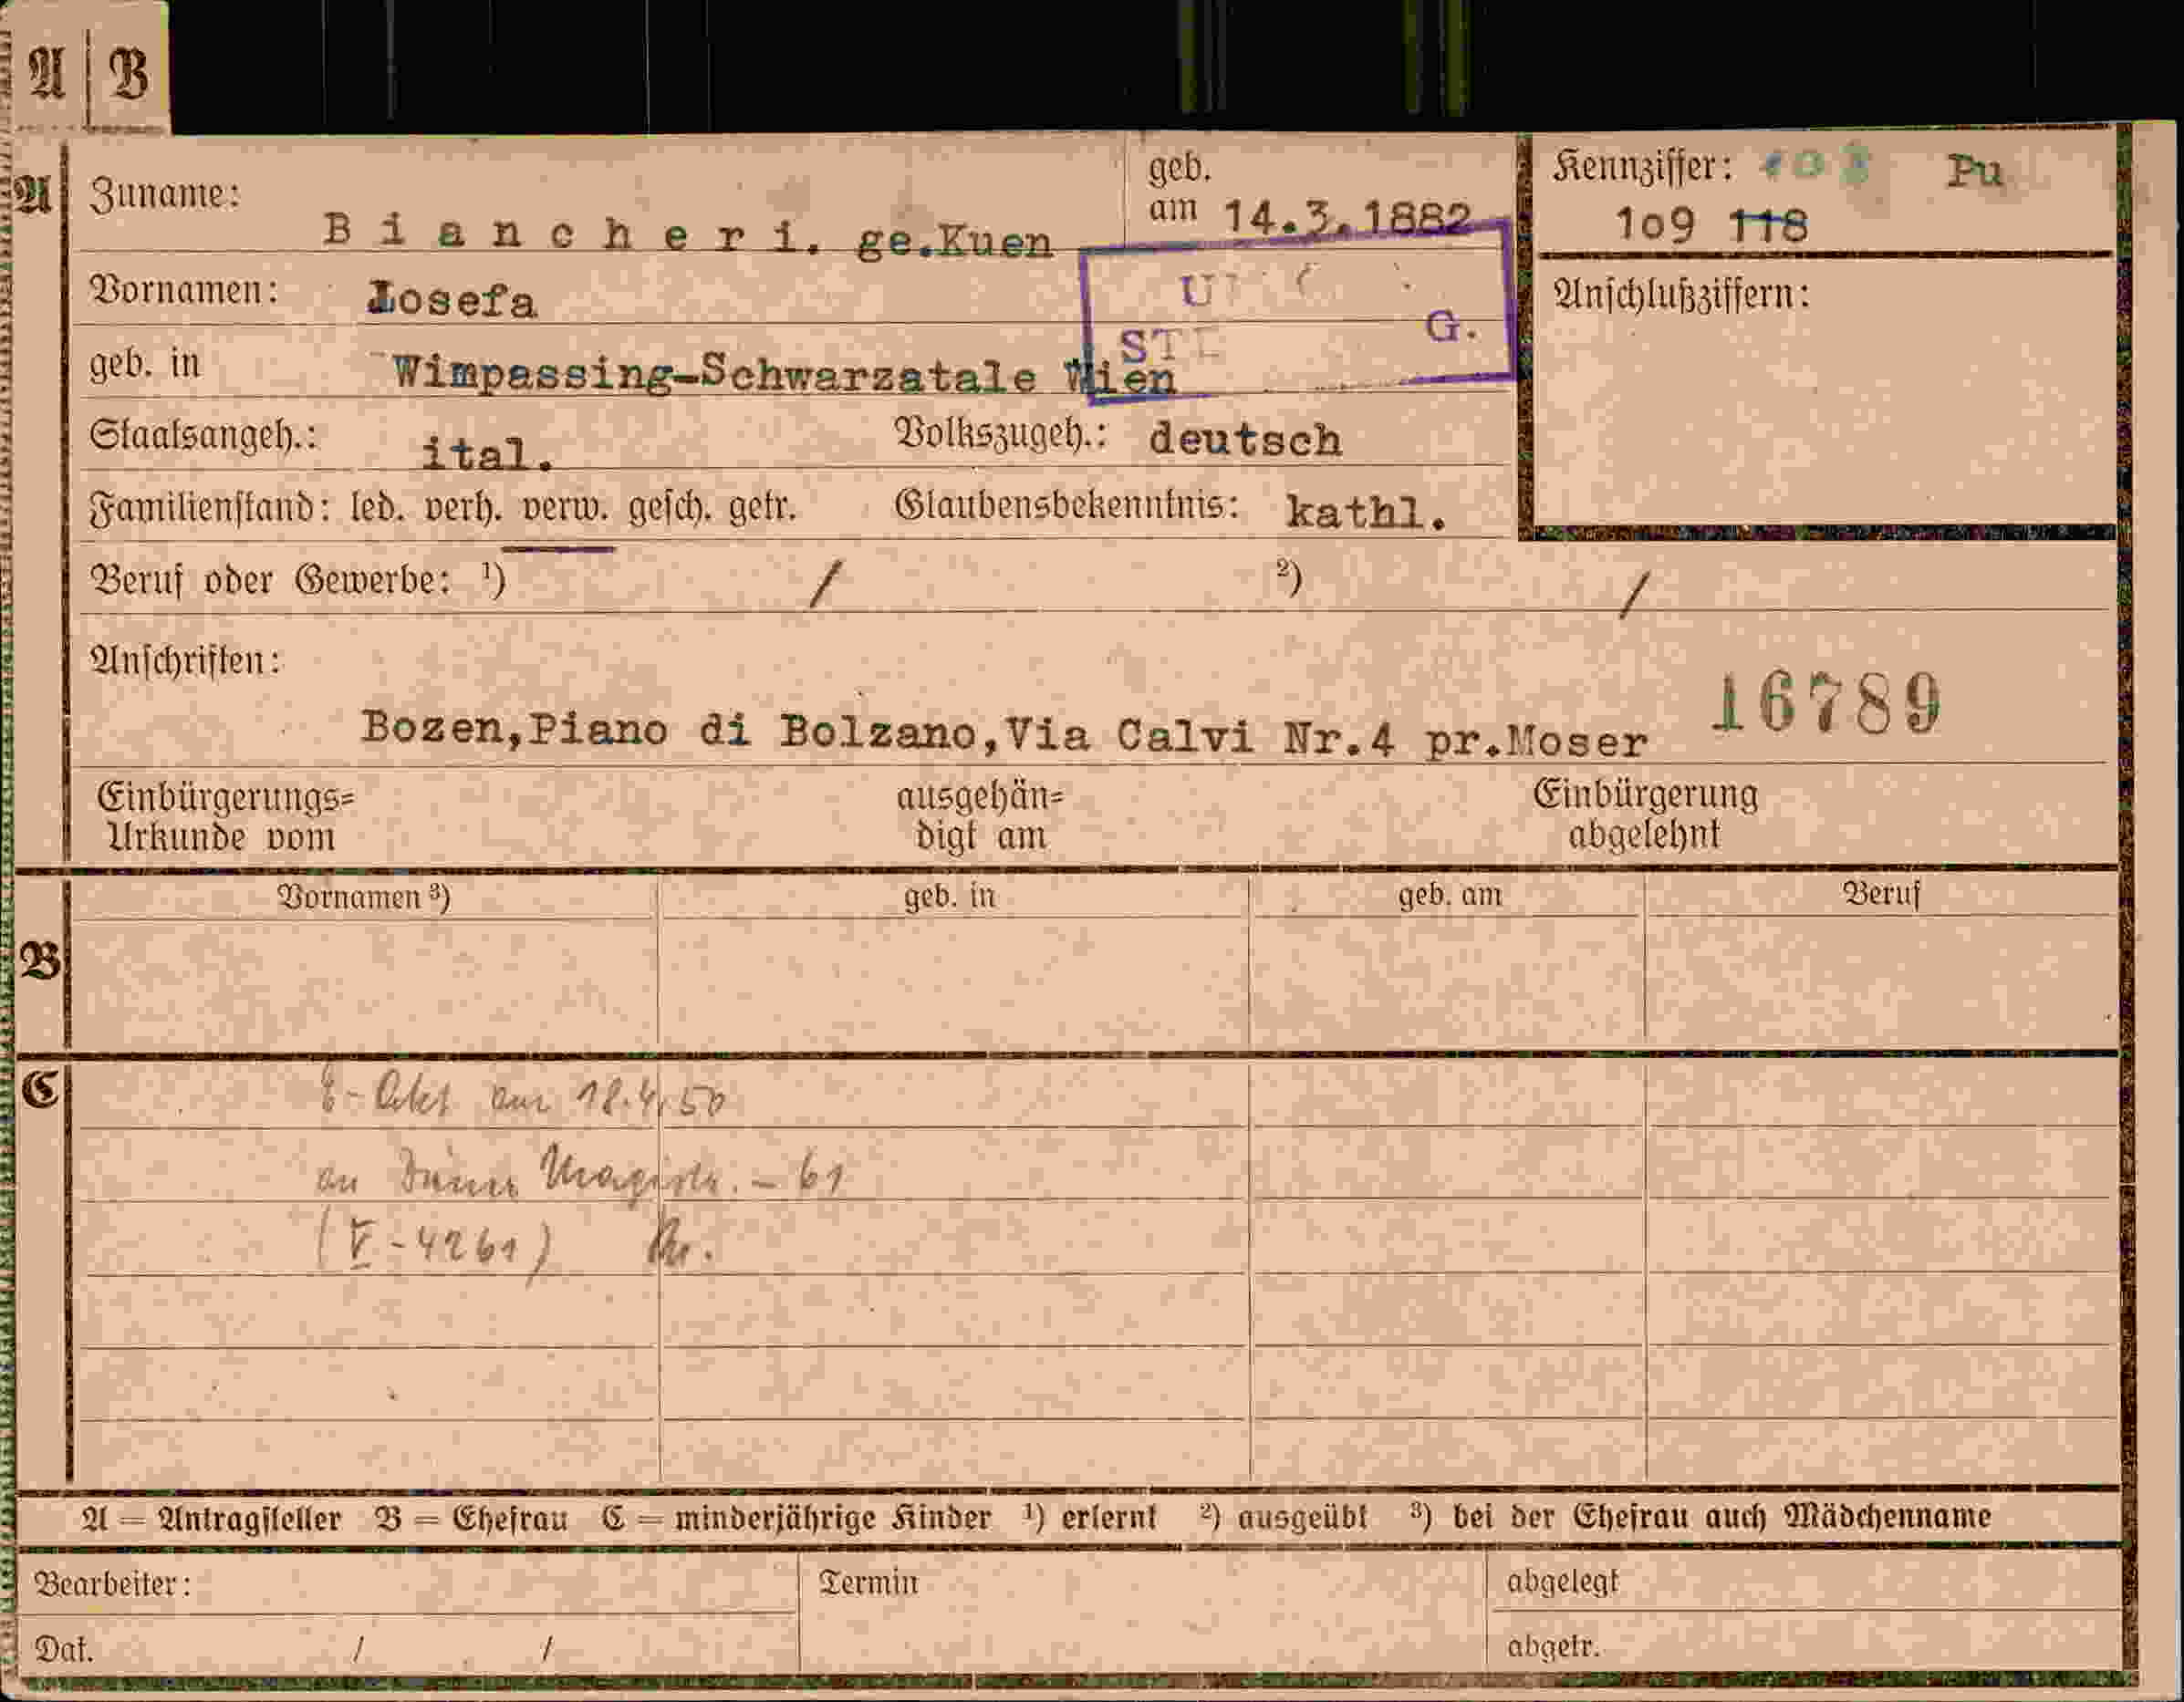 A B
A Zuname: Biancheri. ge.Kuen geb. am 14.3.1882 Kennziffer: Pu
109 118
Vornamen: Iosefa Anschlußziffern:
geb. in Wimpassing-Schwarzatale Wien G.
Staatsangeh.: ital. Volkszugeh.: deutsch
Familienstand: led. verh. verw. gesch. getr. Glaubensbekenntnis: kathl.
Beruf oder Gewerbe: ¹) / ²) /
Anschriften:
Bozen,Piano di Bolzano,Via Calvi Nr.4 pr.Moser 16789
Einbürgerungs= ausgehän= Einbürgerung
Urkunde vom digt am abgelehnt
Vornamen ³) geb. in geb. am Beruf
B
C
E-Akt am 18.4.50
an Magistr. - 61
(V-4261)
A = Antragsteller B = Ehefrau C = minderjährige Kinder ¹) erlernt ²) ausgeübt ³) bei der Ehefrau auch Mädchenname
Bearbeiter: Termin abgelegt
Dat. / / abgetr.